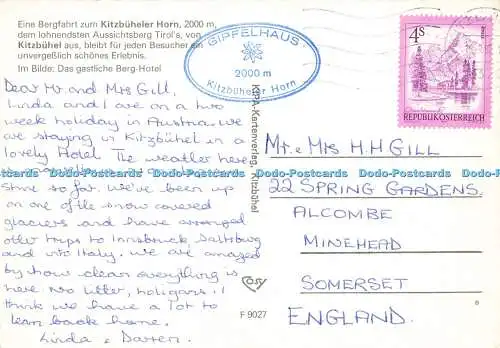 Eine Bergfahrt zum Kitzbüheler Horn, 2000 m,
dem lohnendsten Aussichtsberg Tirol's, von
Kitzbühel aus, bleibt für jeden Besucher ein
unvergeßlich schönes Erlebnis.
Im Bilde: Das gastliche Berg-Hotel
GIPFELHAUS
2000 m
Kitzbüheler Horn
4S
REPUBLIK ÖSTERREICH
Dear Mr. and Mrs Gill,
Linda and I are on a two
week holiday in Austria. We
are staying in Kitzbühel in a
lovely Hotel. The weather here
shine so far. We've been up
on one of the snow covered
glaciers and have arranged
other trips to Innsbruck, Saltzburg
and into Italy. We are amazed
by how clean everything is
here. No litter, holigans. I
think we have a lot to
learn back home.
Linda & Darren.
KPA-Kartenverlag Kitzbühel
COSY
F 9027
Mr. & Mrs H.H GILL
22 SPRING GARDENS.
ALCOMBE
MINEHEAD
SOMERSET
ENGLAND.
Dodo-Postcards Dodo-Postcards Dodo-Postcards Dodo-Postcards Dodo-Postcards